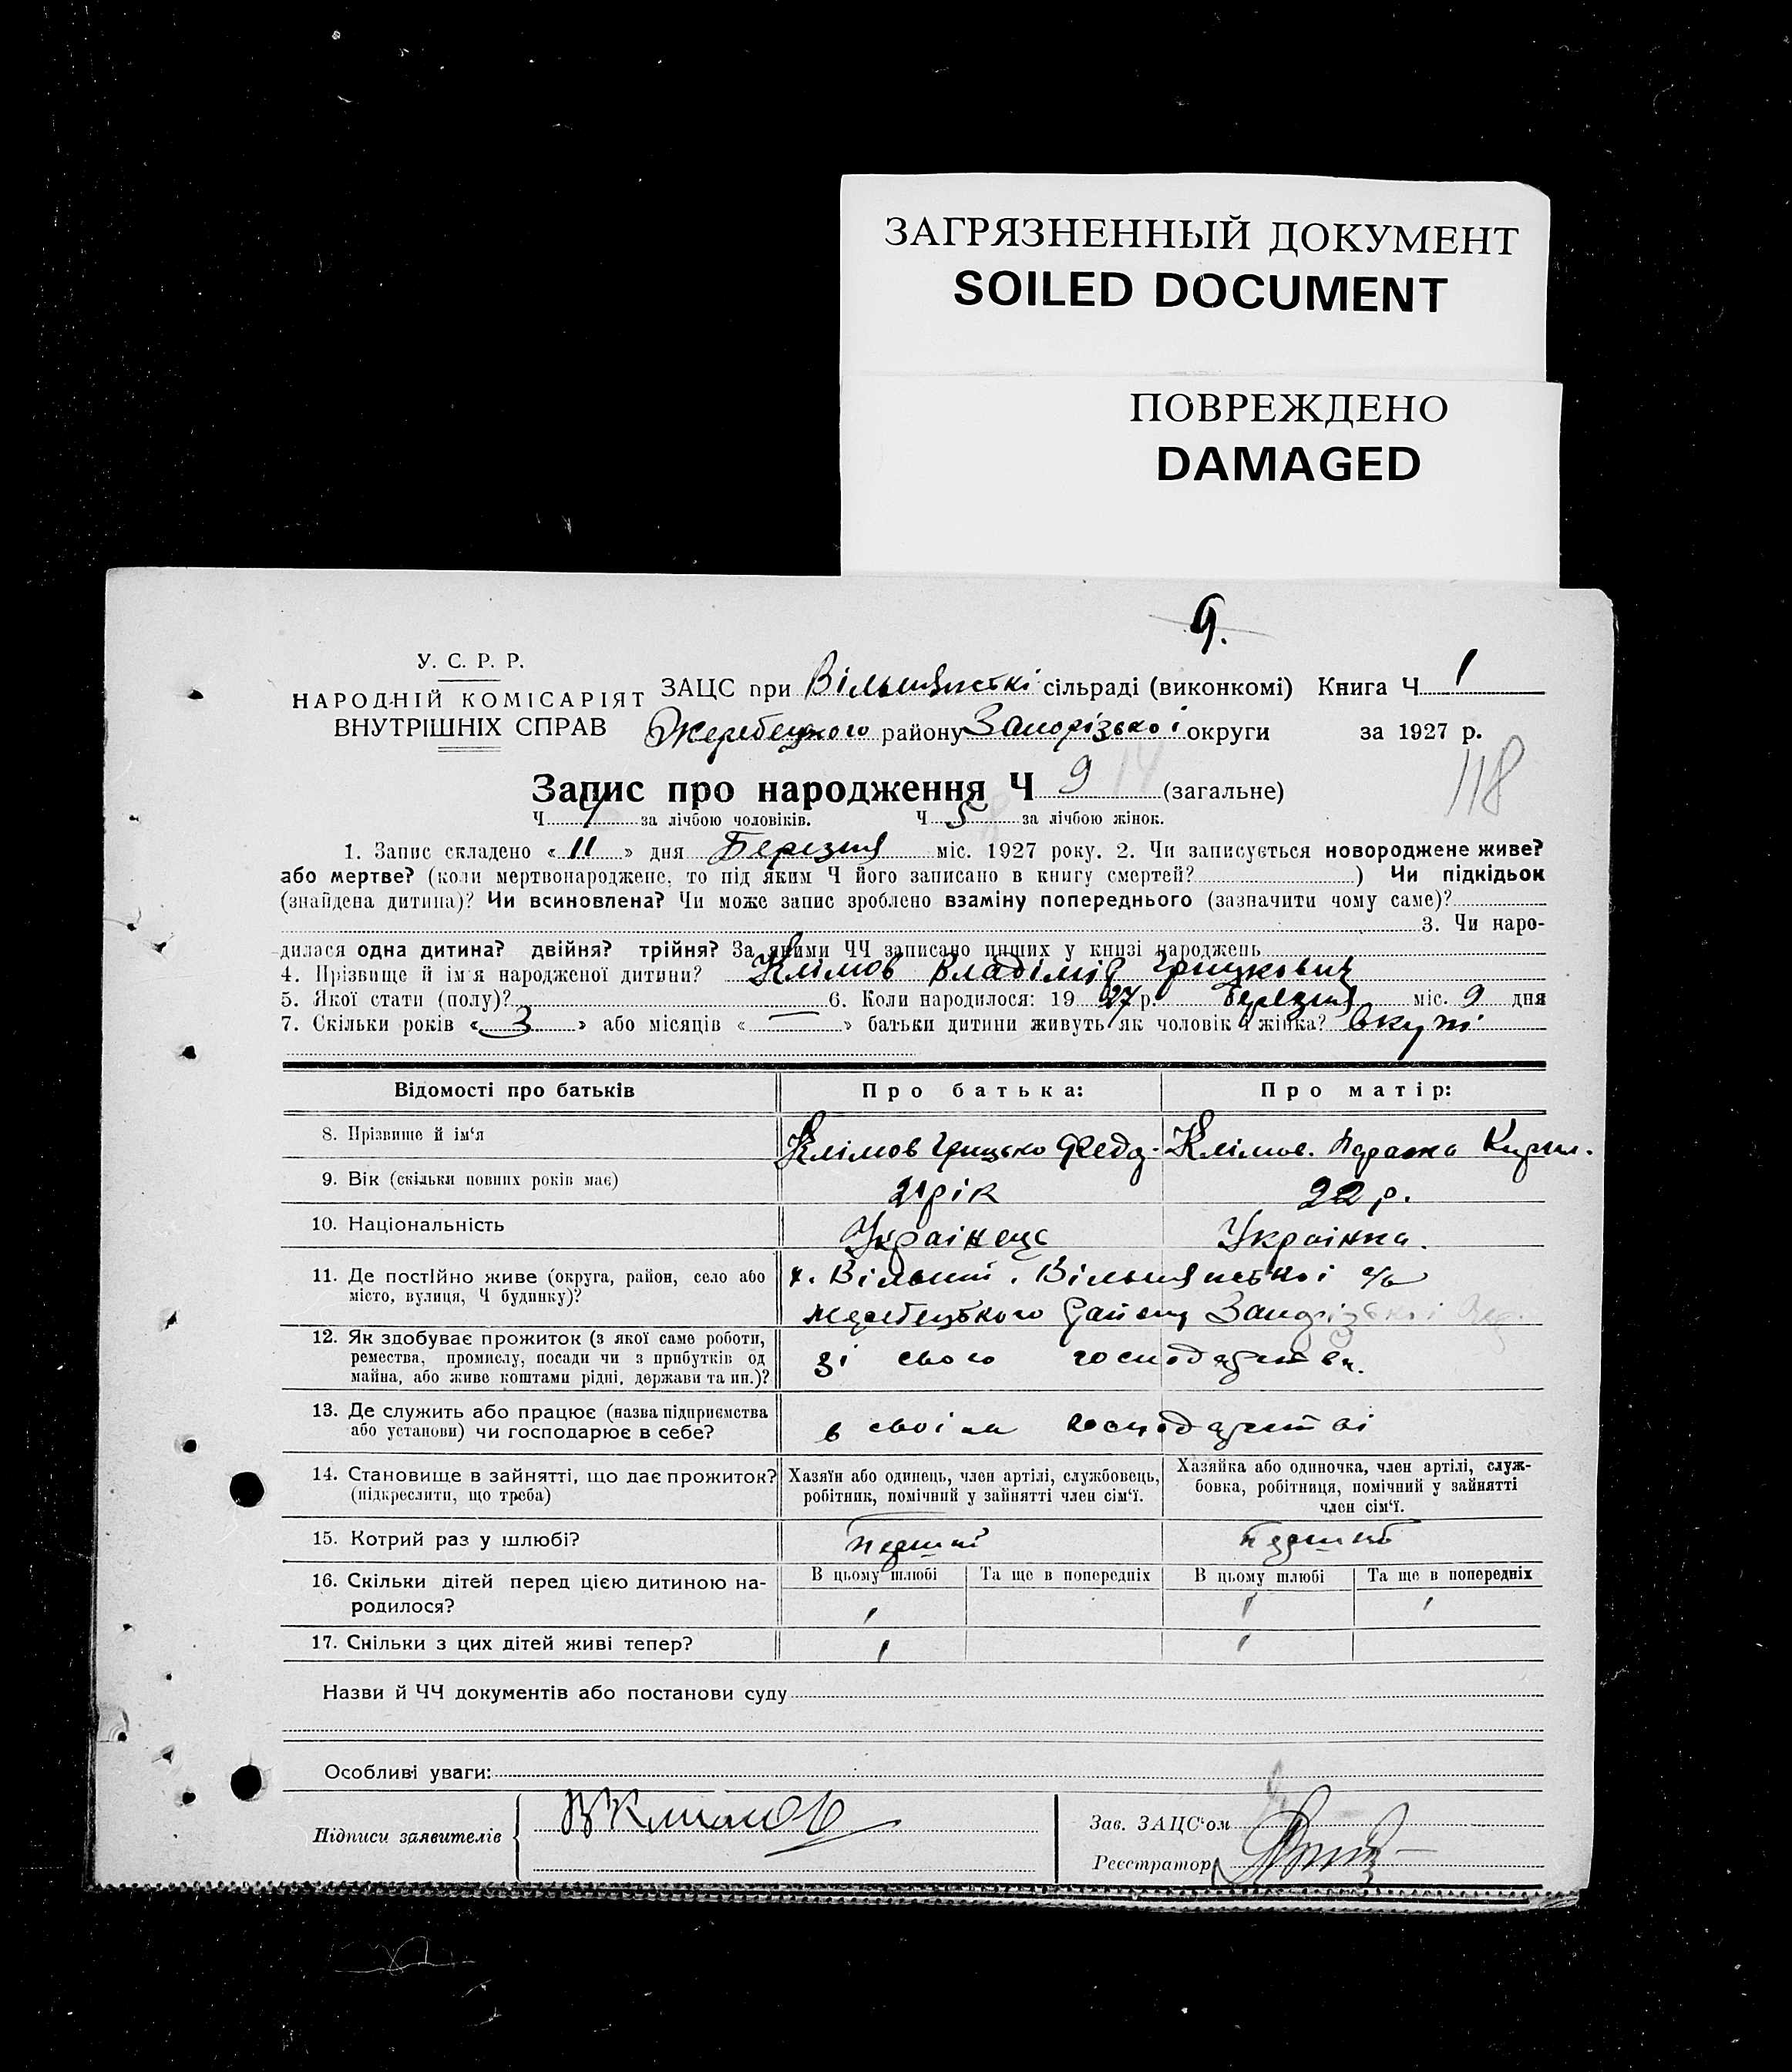 ЗАГРЯЗНЕННЫЙ ДОКУМЕНТ
SOILED DOCUMENT
ПОВРЕЖДЕНО
DAMAGED
9.
У. С. Р. Р.
НАРОДНІЙ КОМІСАРІЯТ
ВНУТРІШНІХ СПРАВ
ЗАЦС при Вільшянські сільраді (виконкомі) Книга Ч 1
Жеребецького району Запорізької округи за 1927 р.
118
Запис про народження Ч 9 14 (загальне)
Ч 4 за лічбою чоловіків. Ч 5 за лічбою жінок.
1. Запис складено « 11 » дня Березня міс. 1927 року. 2. Чи записується новороджене живе?
або мертве? (коли мертвонароджене, то під яким Ч його записано в книгу смертей? ) Чи підкідьок
(знайдена дитина)? Чи всиновлена? Чи може запис зроблено взаміну попереднього (зазначити чому саме)?
3. Чи наро-
дилася одна дитина? двійня? трійня? За якими ЧЧ записано инших у книзі народжень
4. Прізвище й ім'я народженої дитини? Клімов Владімір Грицькович
5. Якої стати (полу)? 6. Коли народилося: 19 27 р. Березня міс. 9 дня
7. Скільки років « 3 » або місяців « — » батьки дитини живуть як чоловік і жінка? вкупі
Відомості про батьків Про батька: Про матір:
8. Прізвище й ім'я Клімов Грицько Федо- Клімов. Параска Кирил.
9. Вік (скільки повних років має) 21 рік 22 р.
10. Національність Українець Українка.
11. Де постійно живе (округа, район, село або х. Вільний. Вільшянської с/р
місто, вулиця, Ч будинку)? Жеребецького району Запорізької Окр.
12. Як здобуває прожиток (з якої саме роботи,
ремества, промислу, посади чи з прибутків од зі свого господарства.
майна, або живе коштами рідні, держави та ин.)?
13. Де служить або працює (назва підприємства
або установи) чи господарює в себе? в своїм господарстві
14. Становище в зайнятті, що дає прожиток? Хазяїн або одинець, член артілі, службовець, Хазяйка або одиночка, член артілі, служ-
(підкреслити, що треба) робітник, помічний у зайнятті член сім'ї. бовка, робітниця, помічний у зайнятті
член сім'ї.
15. Котрий раз у шлюбі? перший перший
16. Скільки дітей перед цією дитиною на- В цьому шлюбі Та ще в попередніх В цьому шлюбі Та ще в попередніх
родилося? 1 1 1
17. Скільки з цих дітей живі тепер? 1 1
Назви й ЧЧ документів або постанови суду
Особливі уваги:
Підписи заявителів Климов
Зав. ЗАЦС'ом
Реєстратор